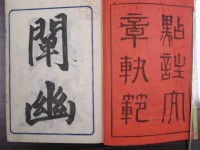 點註文
章軌範
闡幽